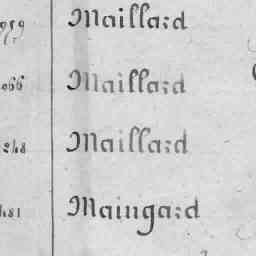 Maillard
066 Maillard
248 Maillard
481 Maingard